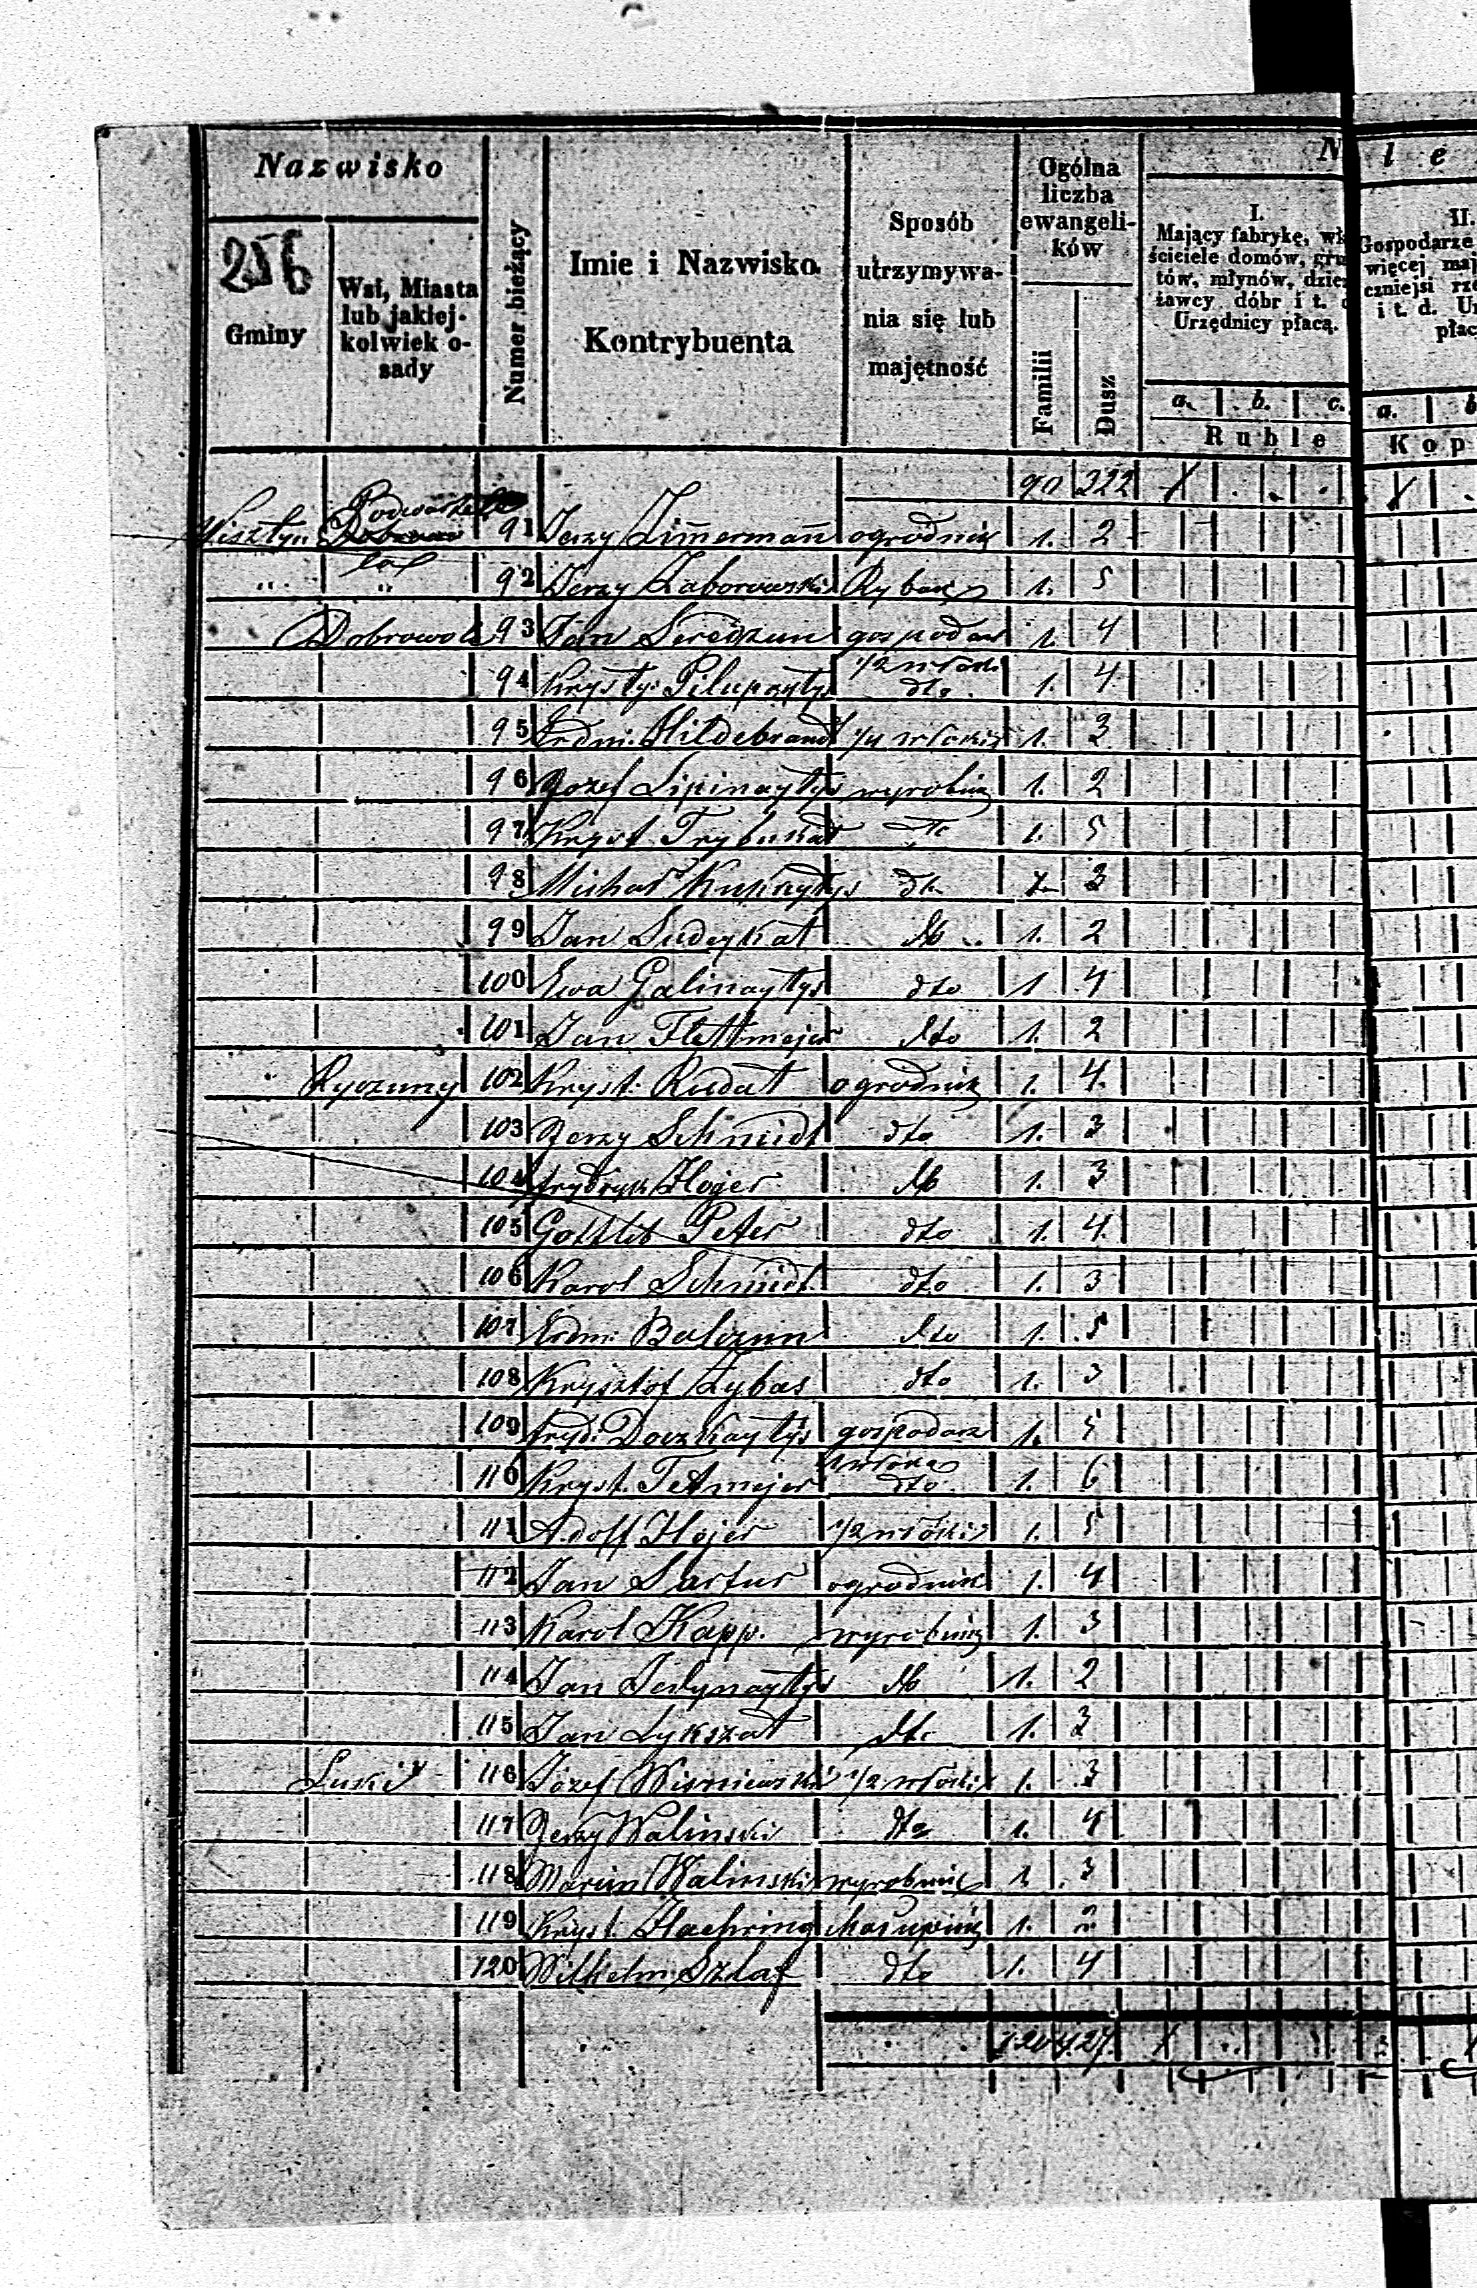 Nazwisko
256
Gminy
Wsi, Miasta
lub jakiej-
kolwiek o-
sady
Numer bieżący
Imie i Nazwisko
Kontrybuenta
Sposób
utrzymywa-
nia się lub
majętność
Ogólna
liczba
ewangeli-
ków
Familii
Dusz
N
I.
Mający fabrykę, wła
ściciele domów, grun
tów, młynów, dzier
żawcy dóbr i t. d
Urzędnicy płacą.
a. b. c.
Ruble
l e
II.
Gospodarze
więcej maj
czniejsi rze
i t. d. Ur
płac
a. b
Kop
90 322
Wisztyn 91 Jerzy Zimmermann ogrodnik 1. 2
" " 92 Jerzy Zaborowski Rybak 1. 5
Dobrowola 93 Jan Seredzun gospodarz 1. 4
1/2 włóki
94 Krystys Pilupaytys dto 1. 4
95 Erdm. Hildebrand 1/4 włóki 1. 3
96 Jozef Lipinaytys wyrobnik 1. 2
97 Kryst. Trybukat dto 1. 5
98 Michał Kupraytys dto 1 3
99 Jan Sudeykat dto 1. 2
100 Ewa Galinaytys dto 1 4
101 Jan Flettmejer dto 1. 2
Ryczuny 102 Kryst. Rudat ogrodnik 1. 4.
103 Jerzy Schmidt dto 1. 3
104 Frydryk Hojer dto 1. 3
105 Gottlib Peter dto 1. 4.
106 Karol Schmidt dto 1. 3
107 Erdm. Balczun dto 1. 5
108 Krysztof Zybas dto 1. 3
109 Fryd. Doczkaytys gospodarz 1. 5
1 włóka
110 Kryst. Tetmejer dto 1. 6
111 Adolf Hojer 1/2 włóki 1. 5
112 Jan Sartur ogrodnik 1. 4
113 Karol Kapp. wyrobnik 1. 3
114 Jan Jedynaytys dto 1. 2
115 Jan Lykszat dto 1. 3
Łuski 116 Józef Wiśniewski 1/2 włóki 1. 3
117 Jerzy Waliński dto 1. 4
118 Marcin Waliński wyrobnik 1 3
119 Kryst. Haehring chałupnik 1. 2
120 Wilhelm Szlaf dto 1. 4
120 427.